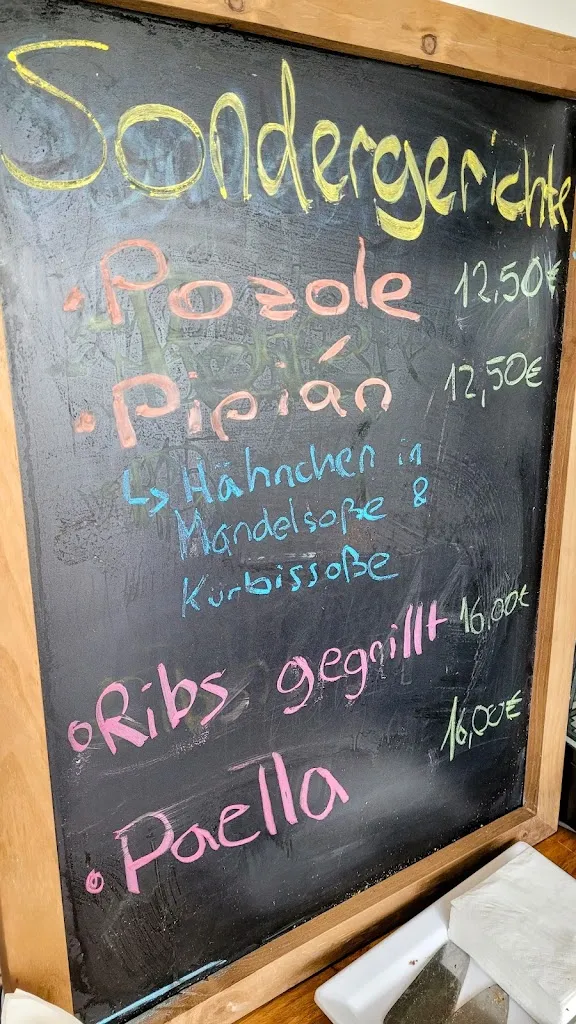 Sondergerichte
• Pozole 12,50€
• Pipián 12,50€
↳ Hähnchen in
Mandelsoße &
Kurbissoße
• Ribs gegrillt 16,00€
• Paella 16,00€